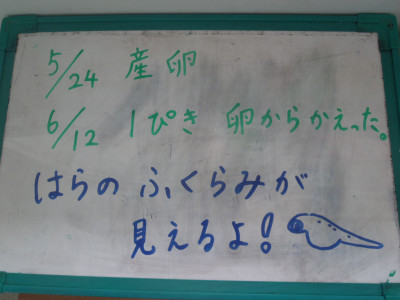 5/24 産卵
6/12 1ぴき 卵からかえった。
はらの ふくらみが
見えるよ!